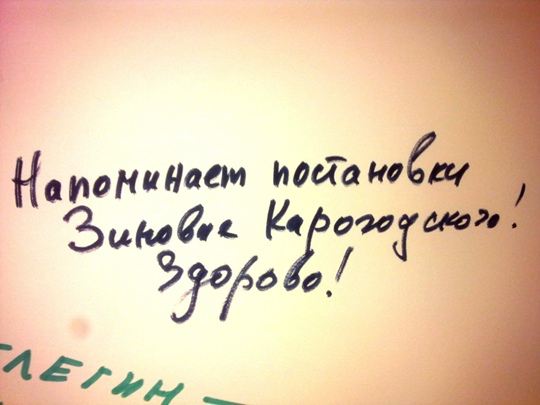 Напоминает постановки
Зиновие Карогодского!
Здорово!
ЛЕГИН